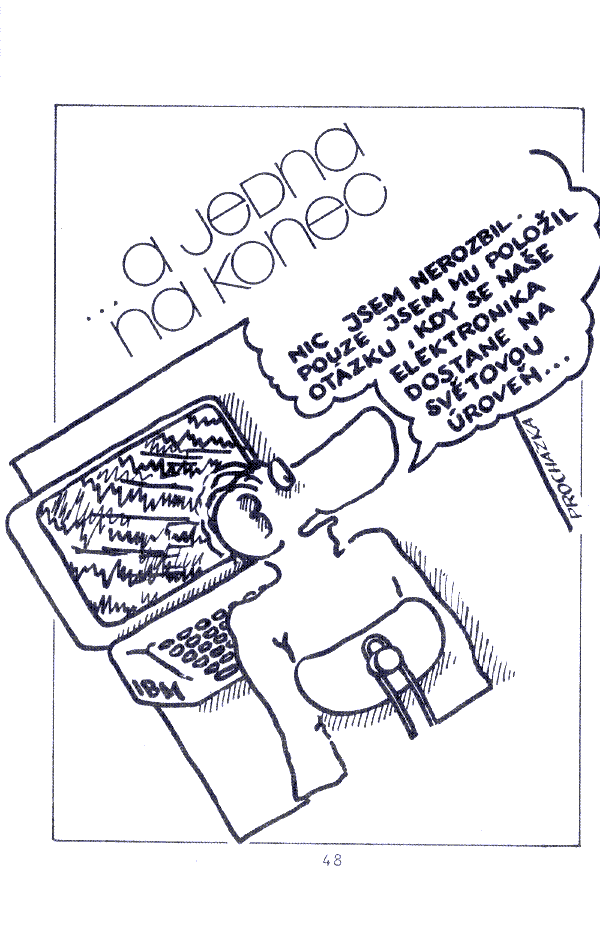 ...a jedna
na konec
NIC JSEM NEROZBIL.
POUZE JSEM MU POLOŽIL
OTÁZKU, KDY SE NAŠE
ELEKTRONIKA
DOSTANE NA
SVĚTOVOU
ÚROVEŇ...
PROCHÁZKA
IBM
48